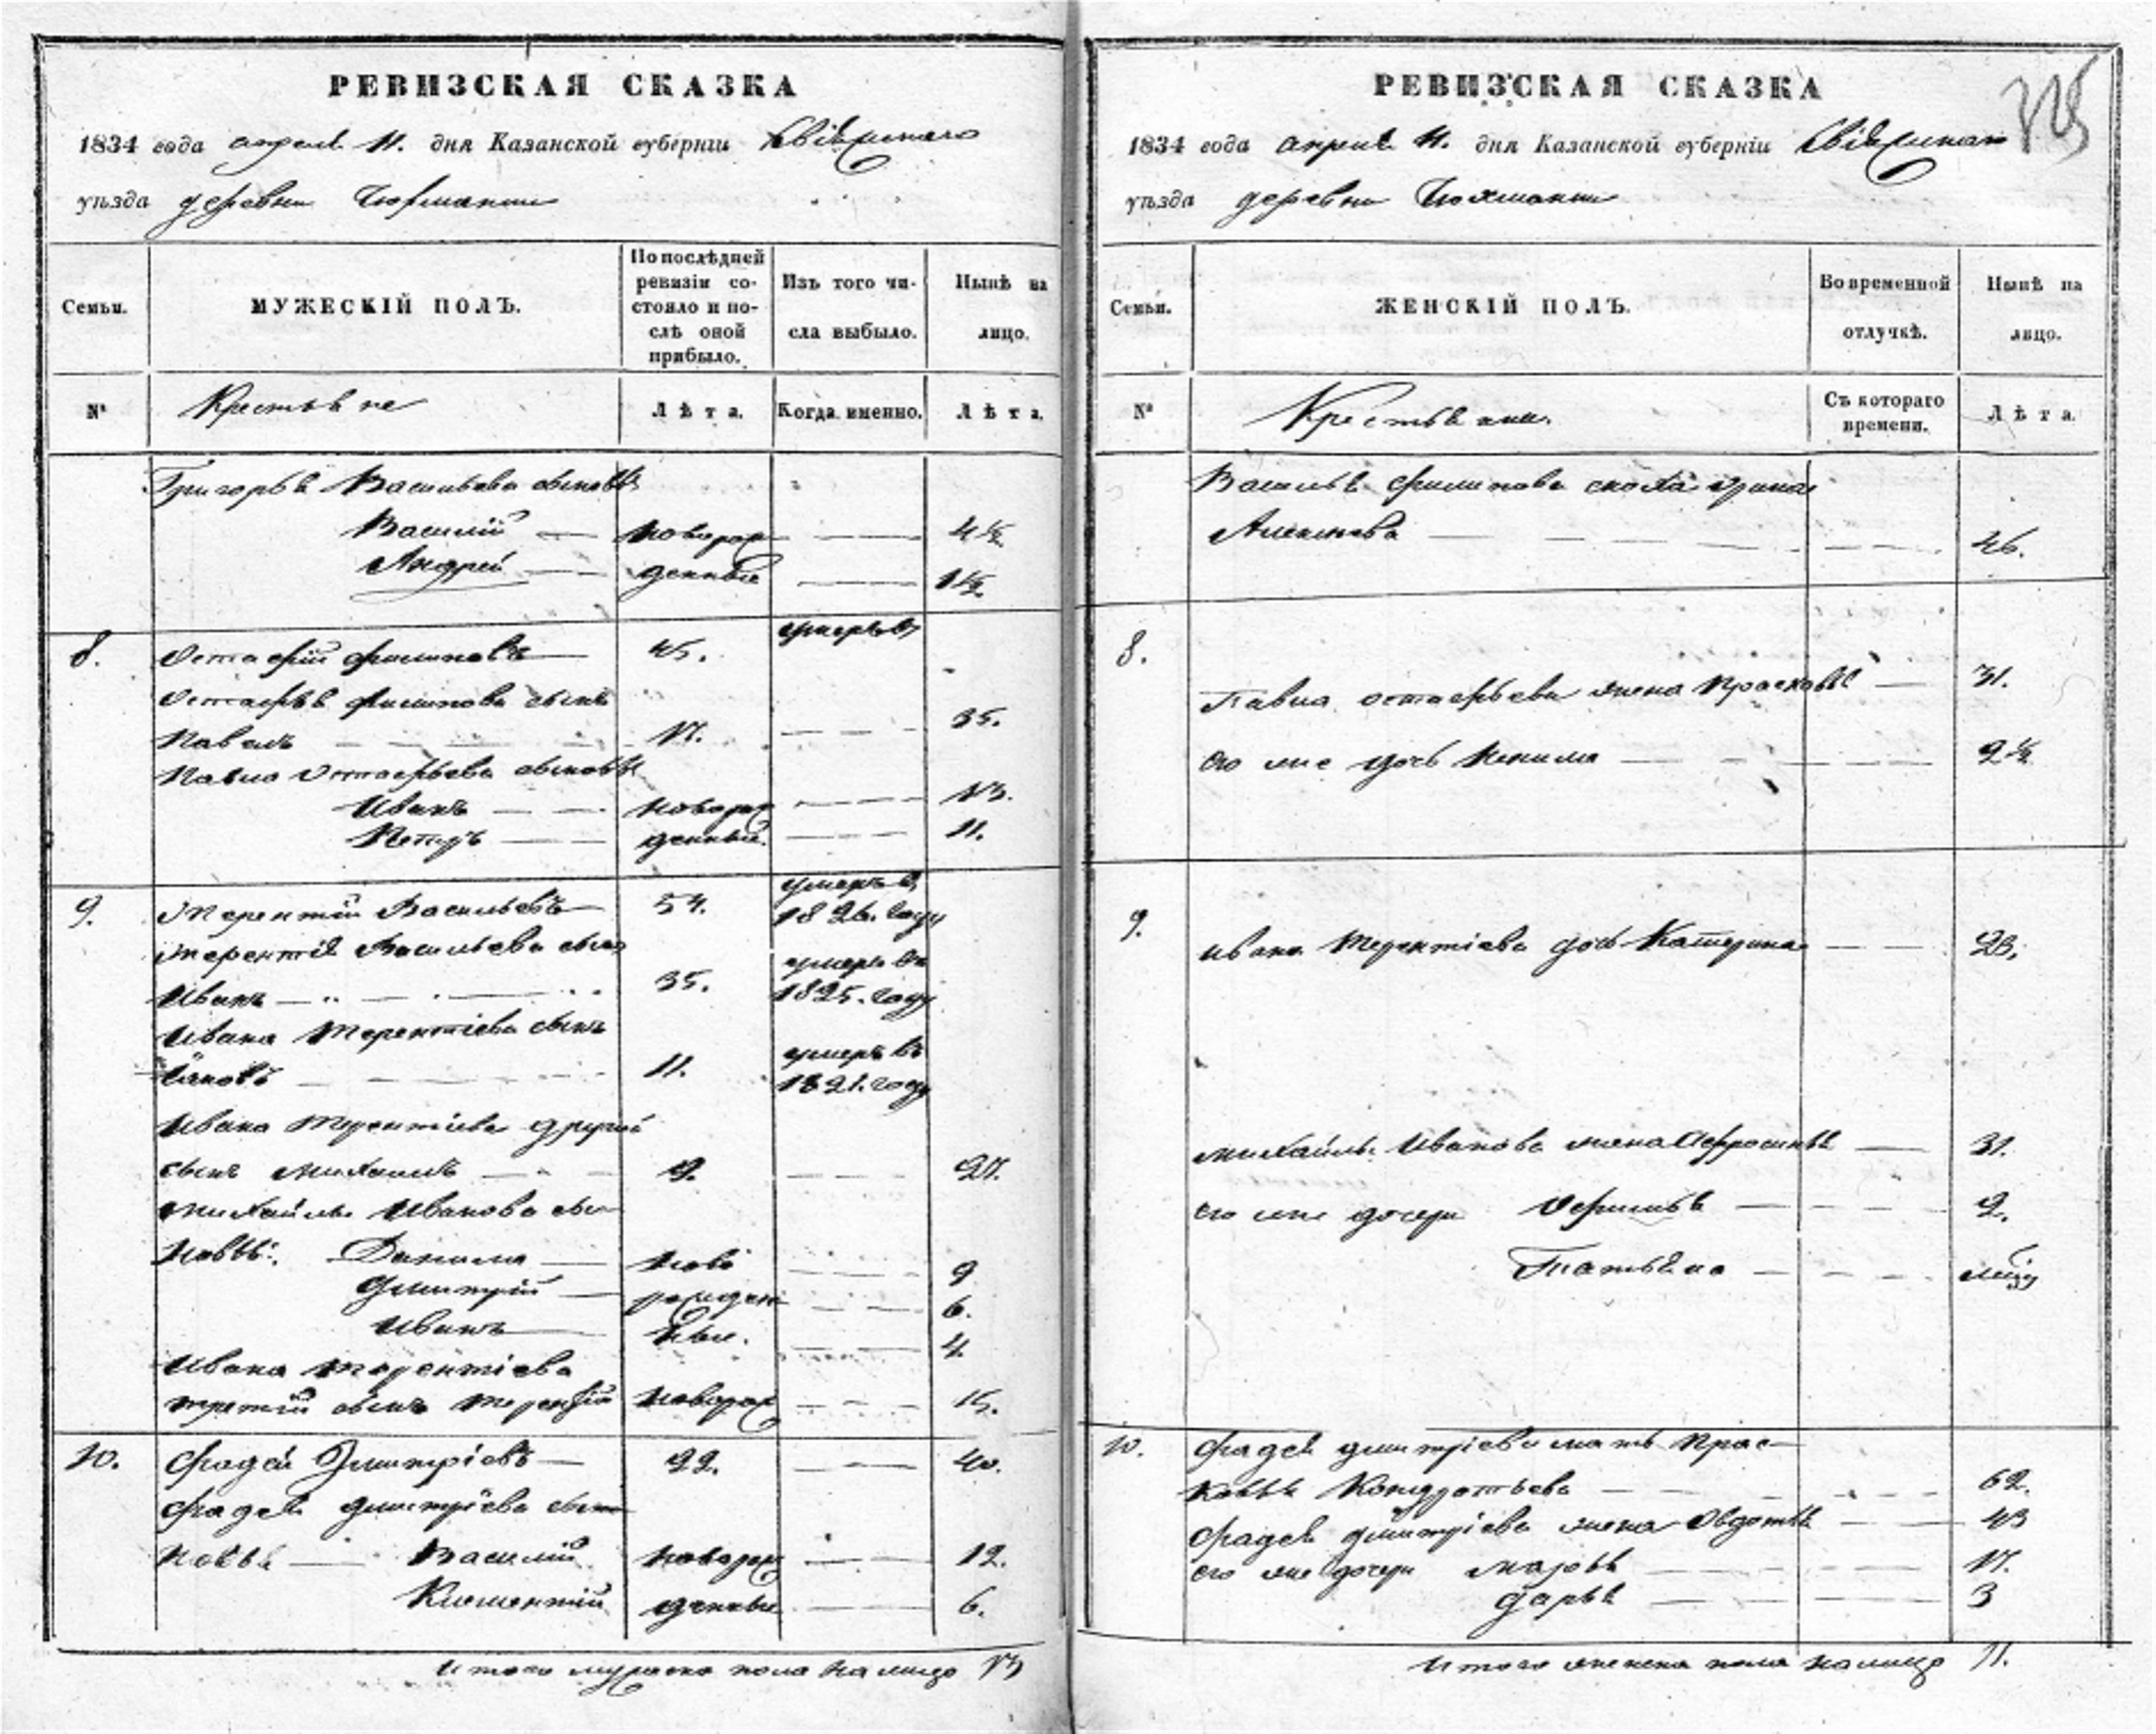 РЕВИЗСКАЯ СКАЗКА
1834 года апреля 11. дня Казанской губерніи Свіяжскаго
уѣзда деревни
Семьи.
МУЖЕСКІЙ ПОЛЪ.
По послѣдней ревизіи со-
стояло и по-
слѣ оной
прибыло.
Изъ того чи-
сла выбыло.
Нынѣ на
лицо.
№
Крестьяне
Лѣта.
Когда именно.
Лѣта.
Григорья Васильева сыновья
Василій — новорож — 4½
Андрей — денные — 1½
8. Остафій Филиповъ — 45. умеръ въ
Остафья Филипова сынъ
Павелъ — 17. — 35.
Павла Остафьева сыновья
Иванъ — новорож — 13.
Петръ — денные. — 11.
9. Терентій Васильевъ — 54. умеръ въ
1826. году
Терентія Васильева сынъ
Иванъ — 35. умеръ въ
1825. году
Ивана Терентіева сынъ
Яковъ — 11. умеръ въ
1821. году
Ивана Терентіева другой
сынъ Михаилъ — 9. — 27.
Михайлы Иванова сы-
новья: Данила — ново — 9
Дмитрій — рожден — 6.
Иванъ — ные. — 4.
Ивана Терентіева
третій сынъ Терентій новорож — 15.
10. Фадей Дмитріевъ — 22. — 40.
Фадея Дмитріева сы-
новья — Василій новорож — 12.
Климентій денные — 6.
Итого мужеска пола на лицо 13
РЕВИЗСКАЯ СКАЗКА
1834 года апреля 11. дня Казанской губерніи Свіяжскаго
уѣзда деревни
Семьи.
ЖЕНСКІЙ ПОЛЪ.
Во временной
отлучкѣ.
Нынѣ на
лицо.
№
Крестьянки.
Съ котораго
времени.
Лѣта.
Василья Филипова сноха Ирина
Алексѣева — 46.
8.
Павла Остафьева жена Прасковья — 31.
его же дочь — 9½
9.
Ивана Терентіева дочь Катерина — 23.
Михайлы Иванова жена Афросинья — 31.
его же дочери Офимья — 2.
Татьяна —
10. Фадея Дмитріева мать Прас-
ковья Кондратьева — 62.
Фадея Дмитріева жена Овдотья — 43
его же дочери Марья — 17.
Дарья — 3
Итого женска пола на лицо 11.